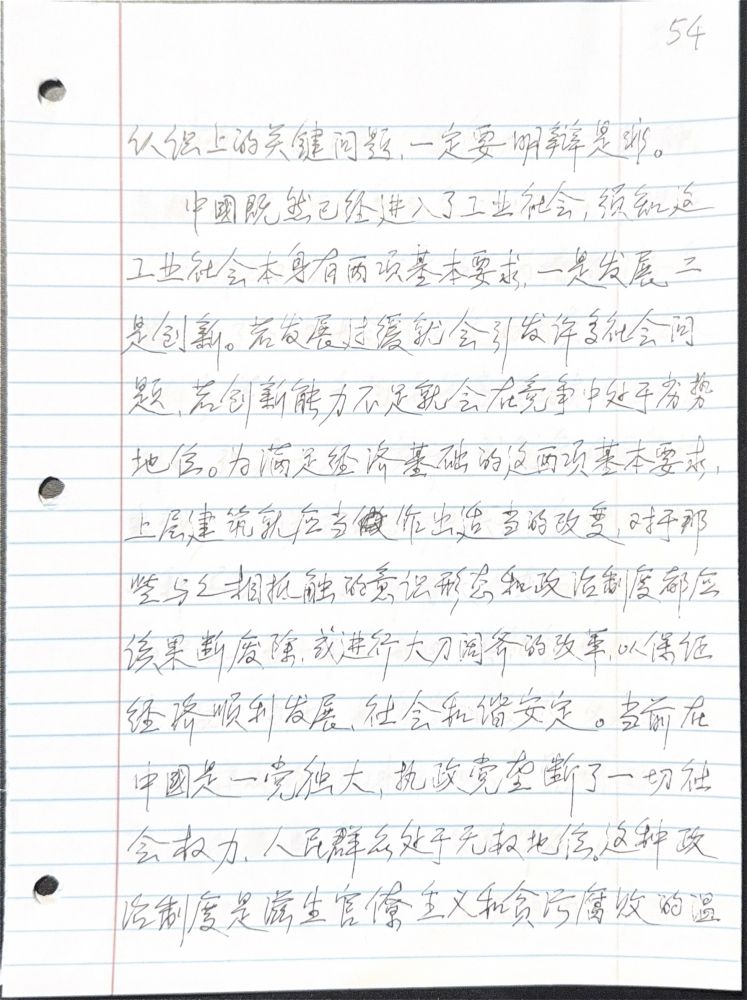 54
认识上的关键问题,一定要明辩是非。
中國既然已经进入了工业社会,须知这
工业社会本身有两项基本要求,一是发展,二
是创新。若发展过缓就会引发许多社会问
题,若创新能力不足就会在竞争中处于劣势
地位。为满足经济基础的这两项基本要求,
上层建筑就应当作出适当的改变,对于那
些与之相抵触的意识形态和政治制度都应
该果断废除,或进行大刀阔斧的改革,以保证
经济顺利发展,社会和谐安定。当前在
中國是一党独大,执政党垄断了一切社
会权力,人民群众处于无权地位。这种政
治制度是滋生官僚主义和贪污腐败的温